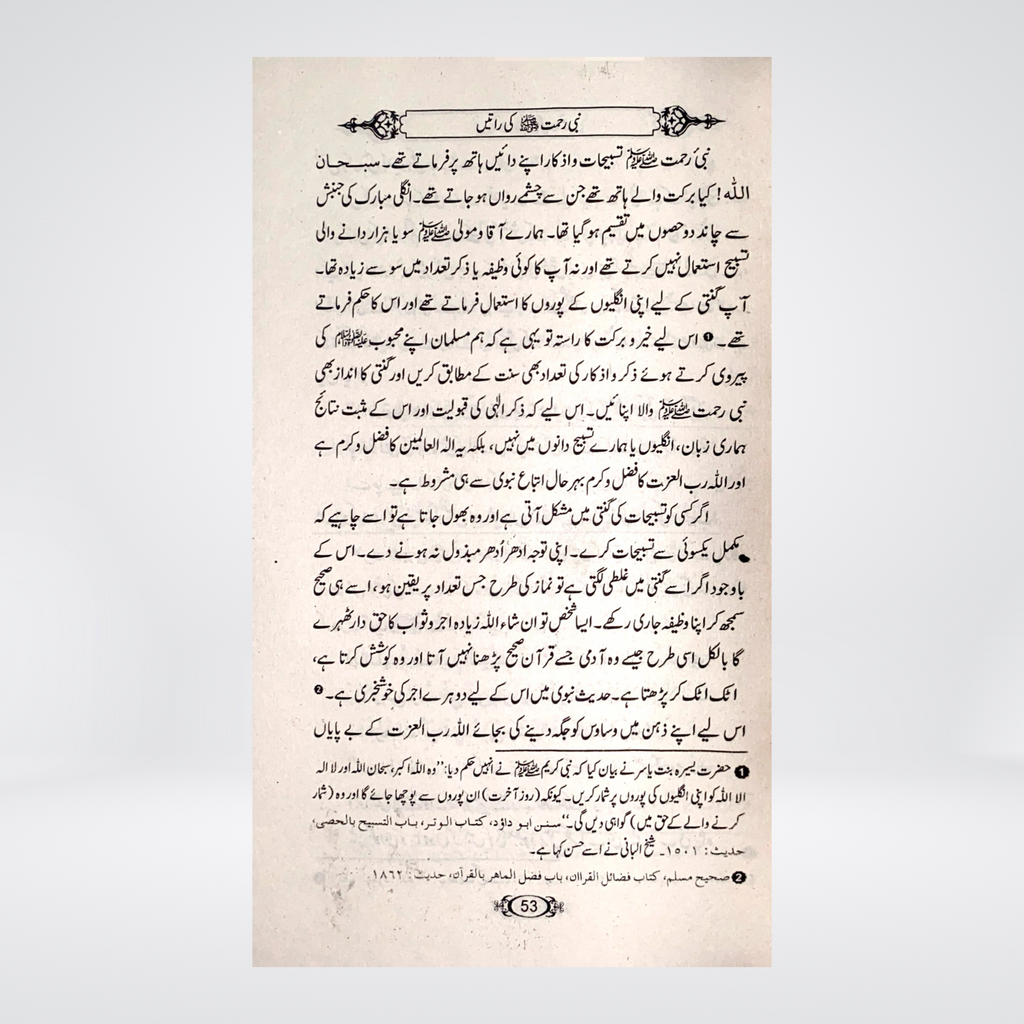 نبی رحمت ﷺ کی راتیں
نبیٔ رحمت ﷺ تسبیحات و اذکار اپنے دائیں ہاتھ پر فرماتے تھے۔ سبحان
اللہ! کیا برکت والے ہاتھ تھے جن سے چشمے رواں ہو جاتے تھے۔ انگلی مبارک کی جنبش
سے چاند دو حصوں میں تقسیم ہو گیا تھا۔ ہمارے آقا و مولیٰ ﷺ سو یا ہزار دانے والی
تسبیح استعمال نہیں کرتے تھے اور نہ آپ کا کوئی وظیفہ یا ذکر تعداد میں سو سے زیادہ تھا۔
آپ گنتی کے لیے اپنی انگلیوں کے پوروں کا استعمال فرماتے تھے اور اس کا حکم فرماتے
تھے۔ ❶ اس لیے خیر و برکت کا راستہ تو یہی ہے کہ ہم مسلمان اپنے محبوب ﷺ کی
پیروی کرتے ہوئے ذکر و اذکار کی تعداد بھی سنت کے مطابق کریں اور گنتی کا انداز بھی
نبی رحمت ﷺ والا اپنائیں۔ اس لیے کہ ذکر الٰہی کی قبولیت اور اس کے مثبت نتائج
ہماری زبان، انگلیوں یا ہمارے تسبیح دانوں میں نہیں، بلکہ یہ الٰہ العالمین کا فضل و کرم ہے
اور اللہ رب العزت کا فضل و کرم بہر حال اتباع نبوی سے ہی مشروط ہے۔
اگر کسی کو تسبیحات کی گنتی میں مشکل آتی ہے اور وہ بھول جاتا ہے تو اسے چاہیے کہ
مکمل یکسوئی سے تسبیحات کرے۔ اپنی توجہ ادھر اُدھر مبذول نہ ہونے دے۔ اس کے
باوجود اگر اسے گنتی میں غلطی لگتی ہے تو نماز کی طرح جس تعداد پر یقین ہو، اسے ہی صحیح
سمجھ کر اپنا وظیفہ جاری رکھے۔ ایسا شخص تو ان شاء اللہ زیادہ اجر و ثواب کا حق دار ٹھہرے
گا بالکل اسی طرح جیسے وہ آدمی جسے قرآن صحیح پڑھنا نہیں آتا اور وہ کوشش کرتا ہے،
اٹک اٹک کر پڑھتا ہے۔ حدیث نبوی میں اس کے لیے دوہرے اجر کی خوشخبری ہے۔ ❷
اس لیے اپنے ذہن میں وساوس کو جگہ دینے کی بجائے اللہ رب العزت کے بے پایاں
❶ حضرت یسیرہ بنت یاسر نے بیان کیا کہ نبی کریم ﷺ نے انہیں حکم دیا: ”وہ اللہ اکبر، سبحان اللہ اور لا الہ
الا اللہ کو اپنی انگلیوں کی پوروں پر شمار کریں۔ کیونکہ (روز آخرت) ان پوروں سے پوچھا جائے گا اور وہ (شمار
کرنے والے کے حق میں) گواہی دیں گی۔“ سنن ابو داؤد، کتاب الوتر، باب التسبیح بالحصی،
حدیث: ١٥٠١۔ شیخ البانی نے اسے حسن کہا ہے۔
❷ صحیح مسلم، کتاب فضائل القراان، باب فضل الماھر بالقرآن، حدیث: ١٨٦٢
53